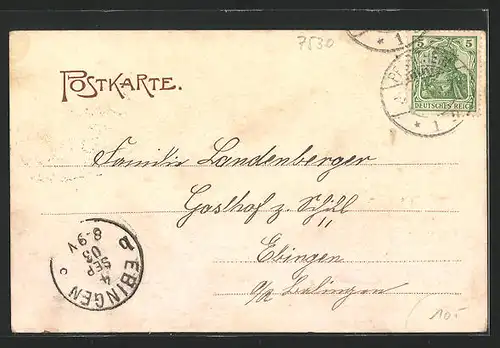 7530
POSTKARTE.
5 5
DEUTSCHES REICH
* 1
* 1
Familie Landenberger
Gasthof z. Schll
Ebingen
o/a Balingen
EBINGEN
4
SEP
03
8-9V
10.-